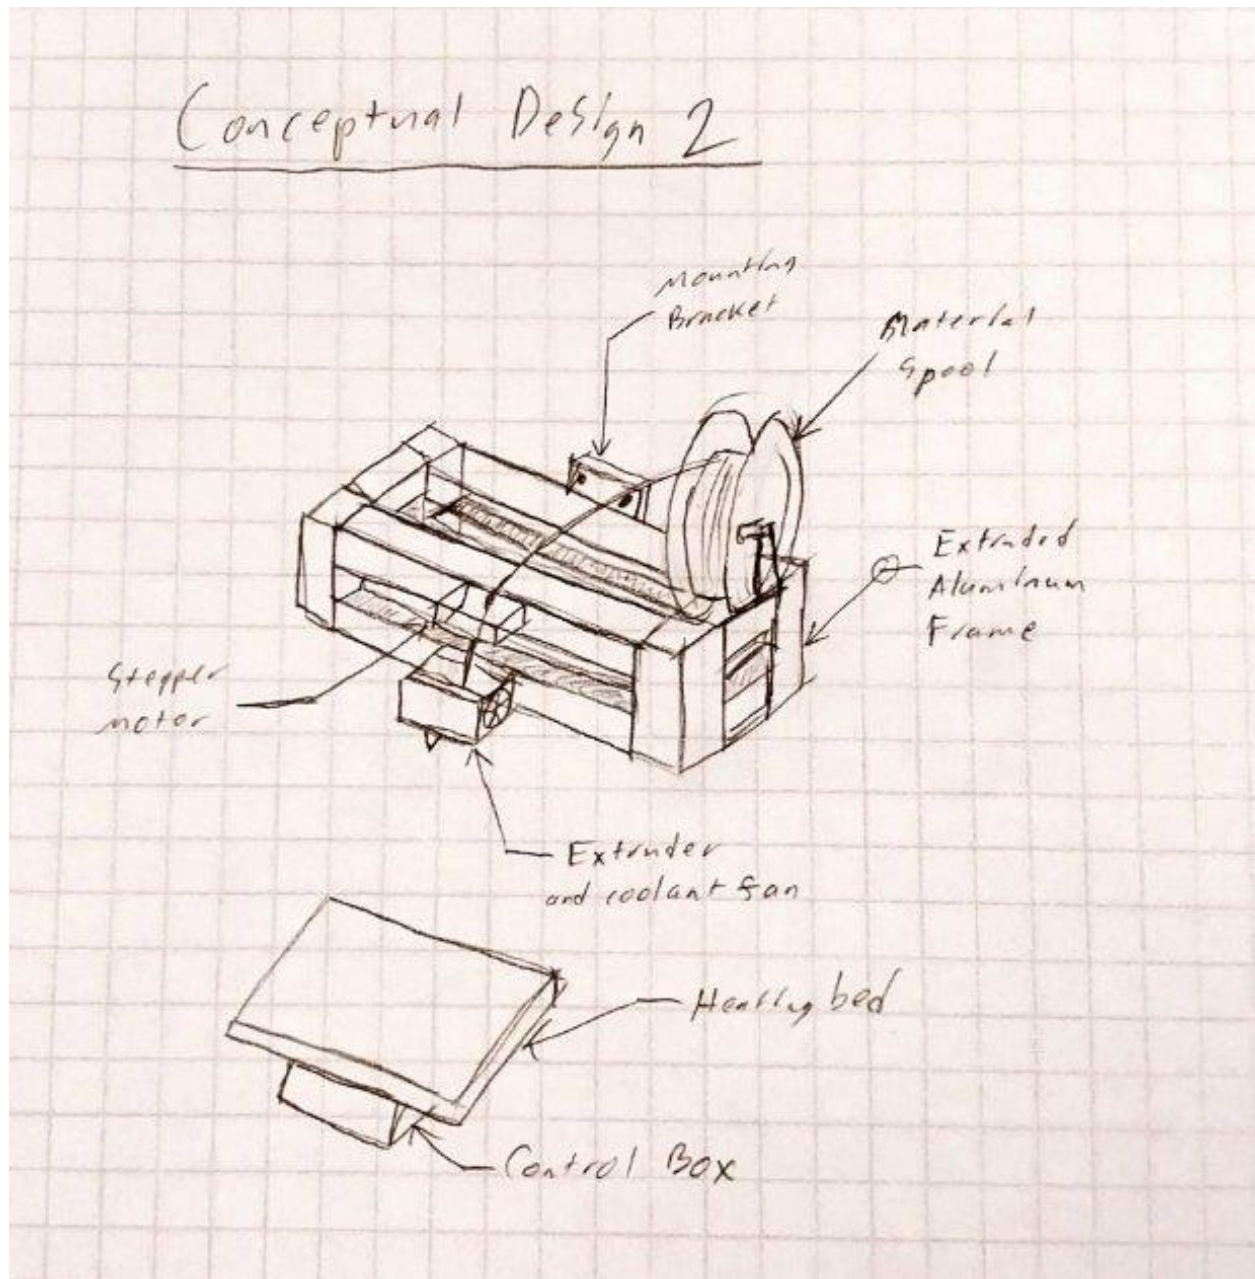 Conceptual Design 2
Mounting
Bracket
Material
Spool
Extruded
Aluminum
Frame
Stepper
motor
Extruder
and coolant fan
Heating bed
Control Box